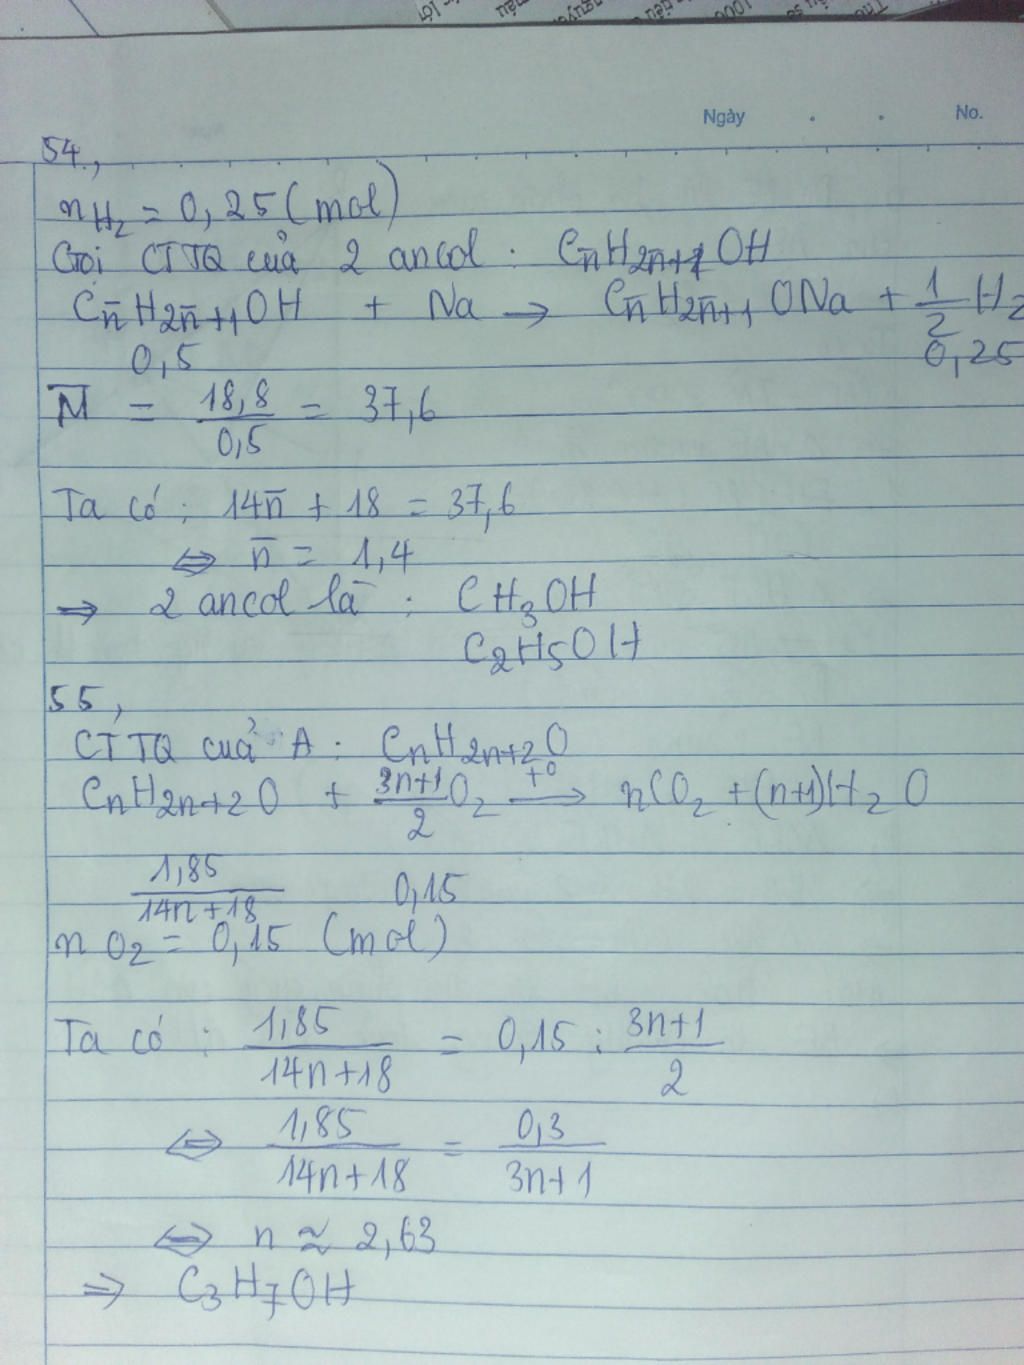 Ngày . . No.
54,
nH₂ = 0,25 (mol)
Gọi CTTQ của 2 ancol : Cn̄H2n̄+1OH
Cn̄H2n̄+1OH + Na → Cn̄H2n̄+1ONa + 1/2 H₂
0,5 0,25
M̄ = 18,8/0,5 = 37,6
Ta có : 14n̄ + 18 = 37,6
⇔ n̄ = 1,4
⇒ 2 ancol là : CH₃OH
C₂H₅OH
55,
CTTQ của A : CnH2n+2O
CnH2n+2O + (3n+1)/2 O₂ →(t⁰) nCO₂ + (n+1)H₂O
1,85/(14n+18) 0,15
nO₂ = 0,15 (mol)
Ta có : 1,85/(14n+18) = 0,15 : (3n+1)/2
⇔ 1,85/(14n+18) = 0,3/(3n+1)
⇔ n ≈ 2,63
⇒ C₃H₇OH